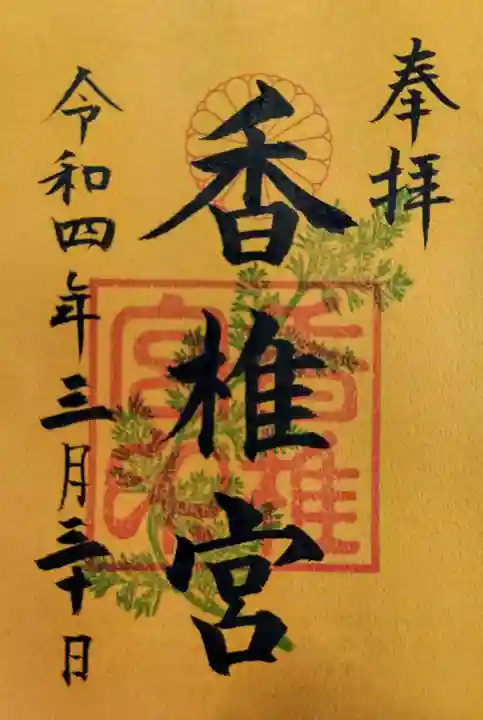 奉拝
香椎宮
香椎宮印
令和四年三月三十日